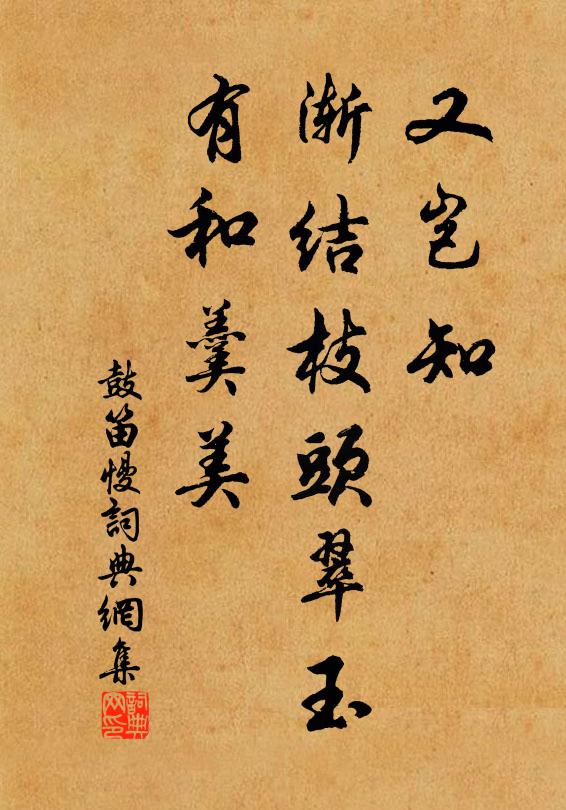 又岂知
渐结枝頭翠玉
有和羹美
鼓笛慢詞典網集
詞典网印